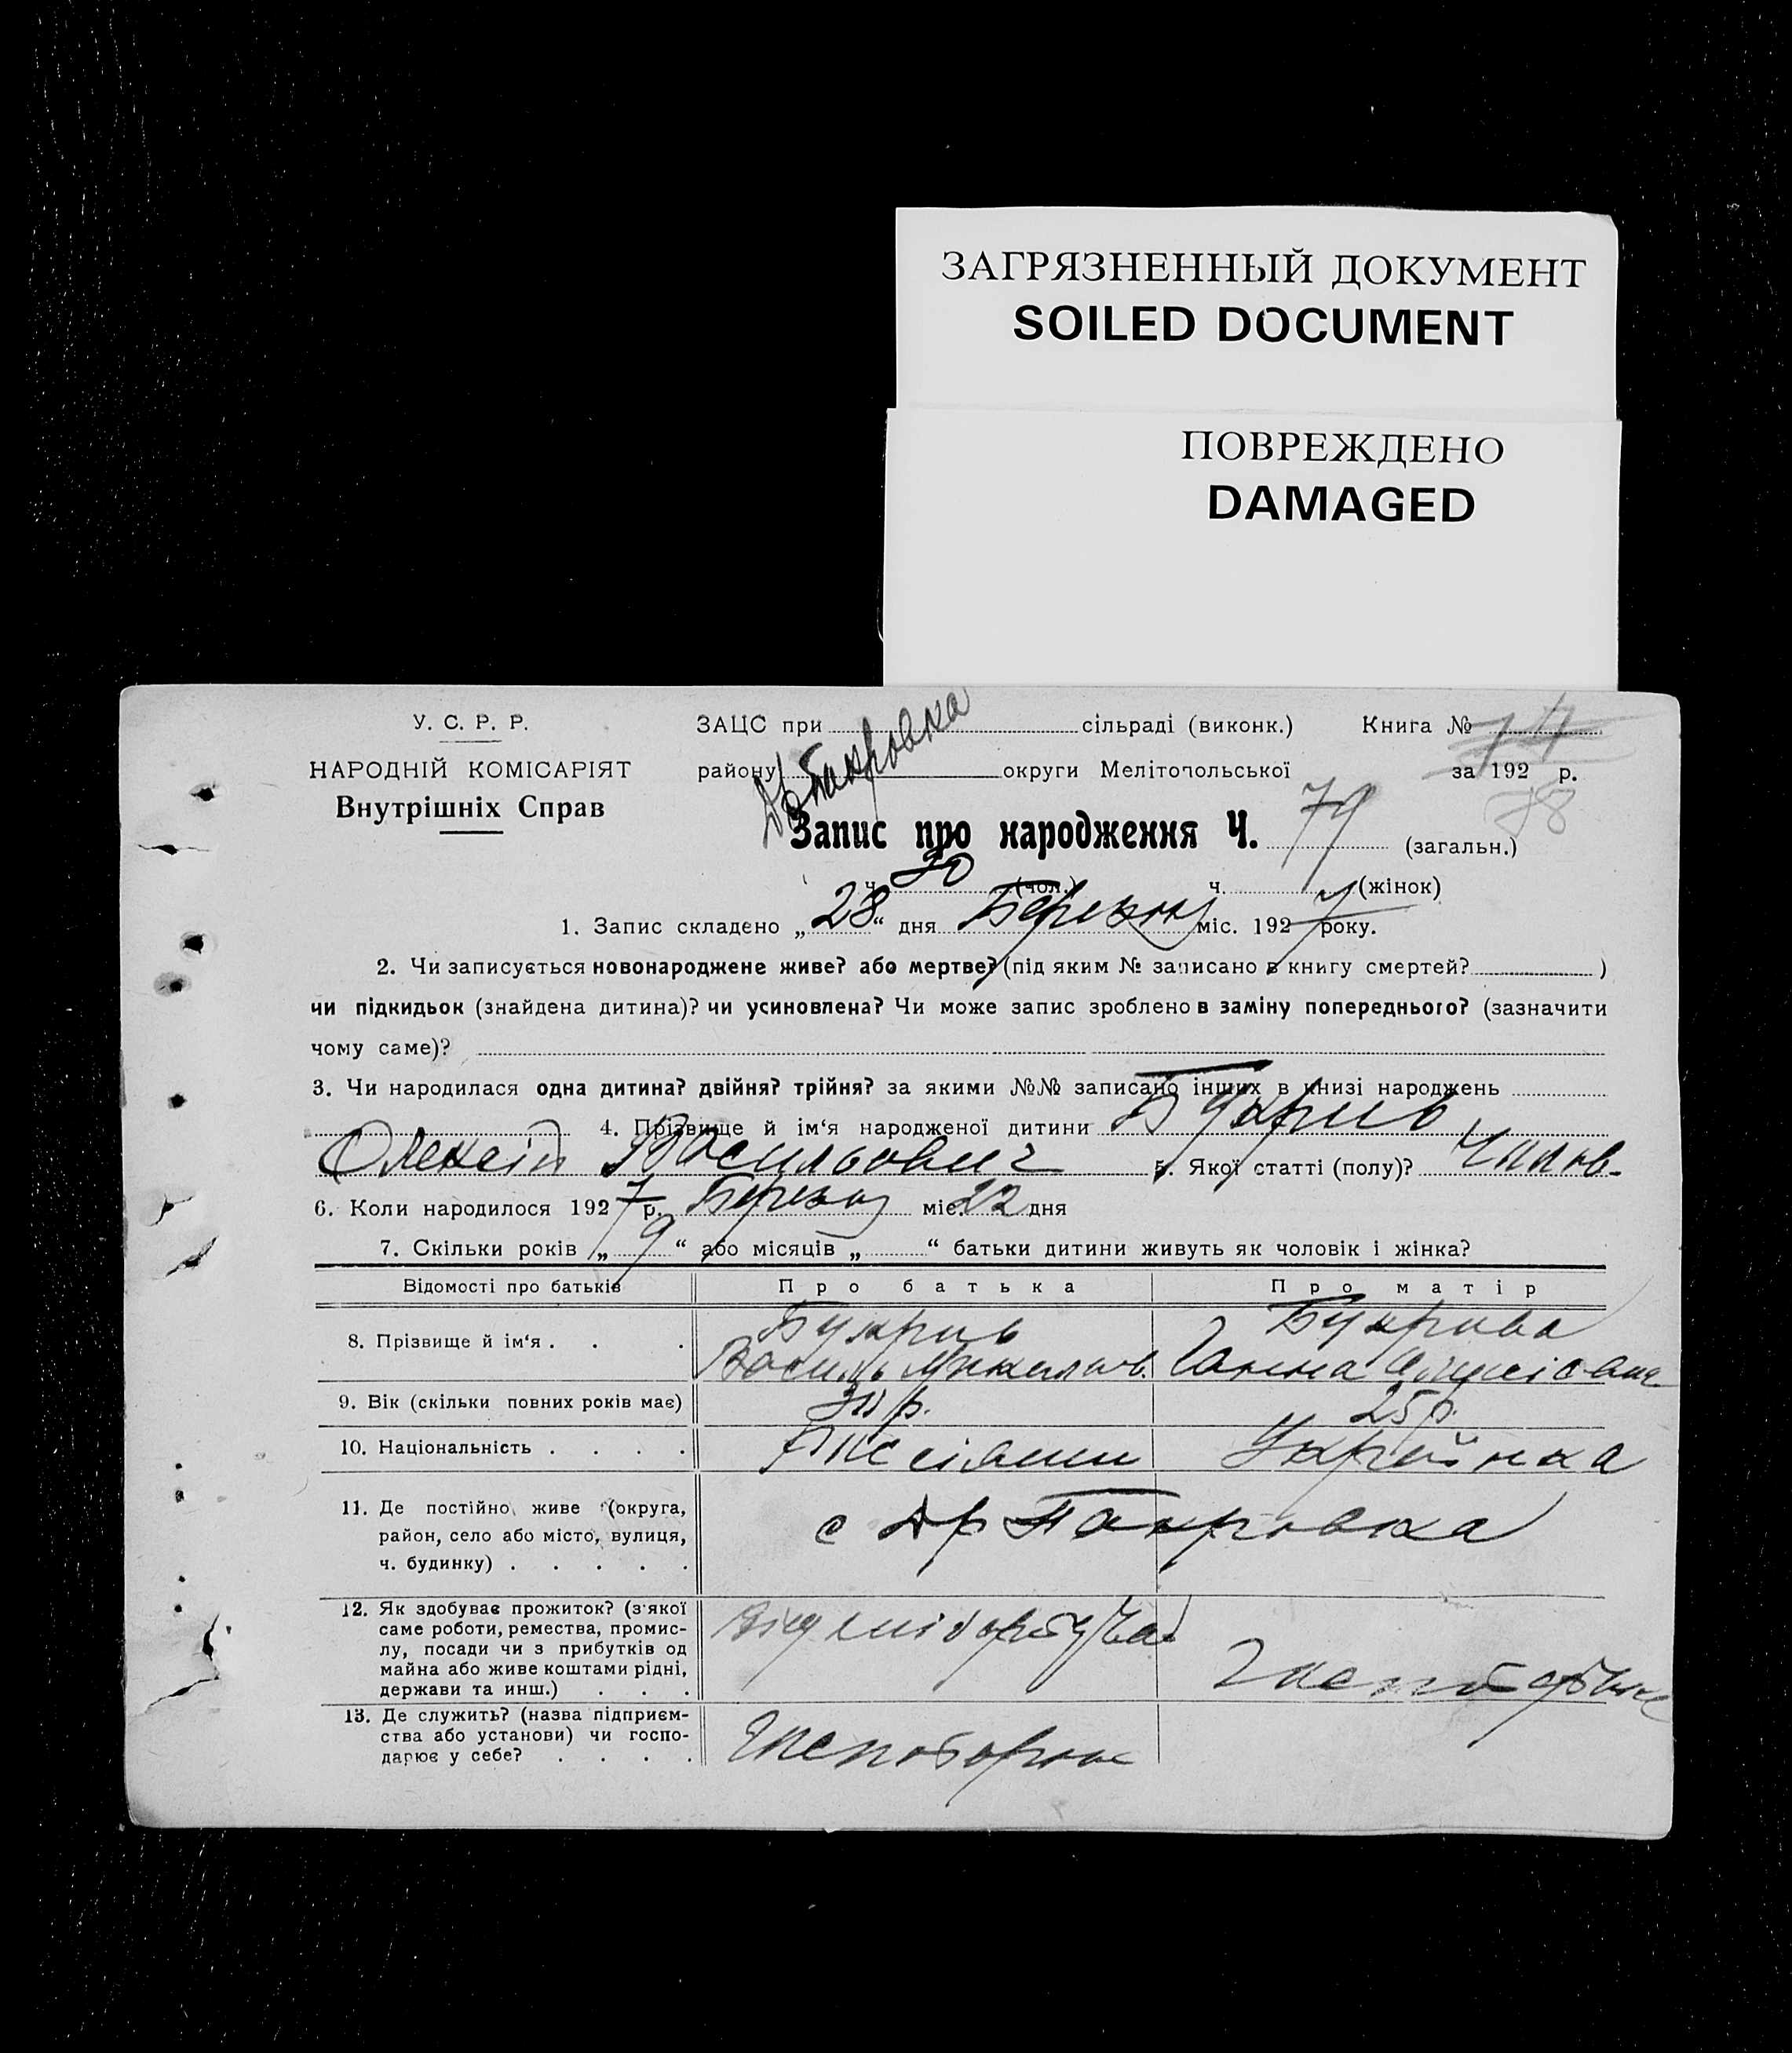 ЗАГРЯЗНЕННЫЙ ДОКУМЕНТ
SOILED DOCUMENT
ПОВРЕЖДЕНО
DAMAGED
У. С. Р. Р.
НАРОДНІЙ КОМІСАРІЯТ
Внутрішніх Справ
ЗАЦС при сільраді (виконк.) Книга № 74
району округи Мелітопольської за 192 р.
Покровка
Запис про народження Ч. 79 (загальн.)
ч. 30 (чол.) ч. (жінок)
1. Запис складено „28“ дня Березня міс. 1927 року.
2. Чи записується новонароджене живе? або мертве? (під яким № записано в книгу смертей? )
чи підкидьок (знайдена дитина)? чи усиновлена? Чи може запис зроблено в заміну попереднього? (зазначити
чому саме)?
3. Чи народилася одна дитина? двійня? трійня? за якими №№ записано інших в книзі народжень
4. Прізвище й ім‘я народженої дитини Букрив
Олексій Васильович 5. Якої статті (полу)? Чилов.
6. Коли народилося 1927 р. Березня міс. 22 дня
7. Скільки років „9“ або місяців „ “ батьки дитини живуть як чоловік і жінка?
Відомості про батьків Про батька Про матір
8. Прізвище й ім‘я . . . Букрив Букрива
Василь Ганна
9. Вік (скільки повних років має) р. 25 р.
10. Національність . . . . Українка
11. Де постійно живе (округа,
район, село або місто, вулиця,
ч. будинку) . . . . .
с Др Покровка
12. Як здобуває прожиток? (з якої
саме роботи, ремества, промис-
лу, посади чи з прибутків од
майна або живе коштами рідні,
держави та инш.) . . .
13. Де служить? (назва підприєм-
ства або установи) чи госпо-
дарює у себе? . . . .